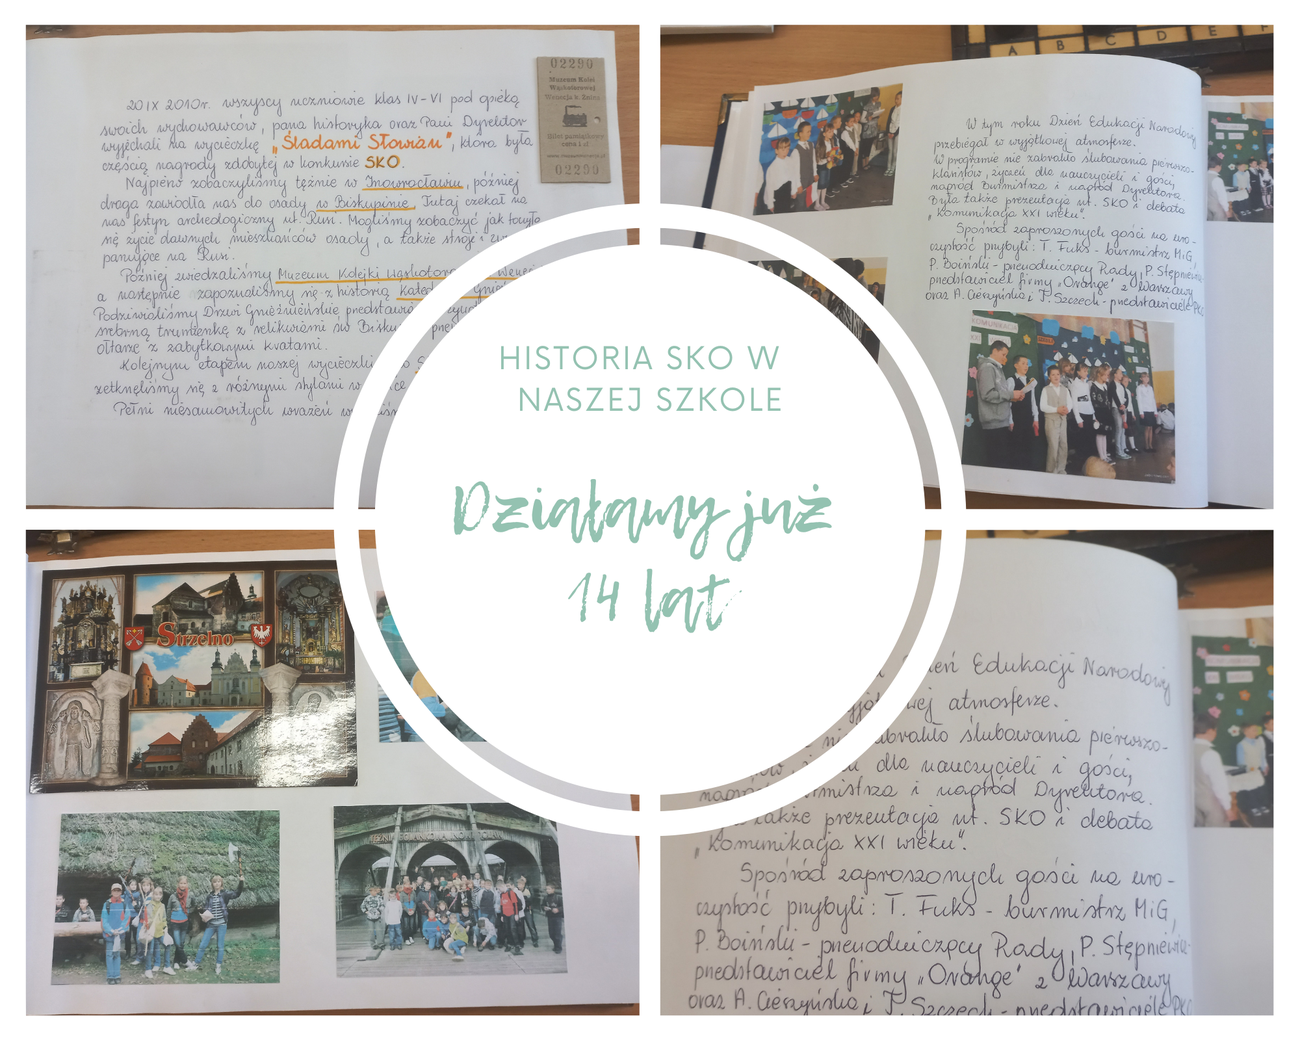 20 IX 2010r. wszyscy uczniowie klas IV-VI pod opieką
swoich wychowawców, pana historyka oraz Pani Dyrektor
wyjechali na wycieczkę „Śladami Słowian", która była
częścią nagrody zdobytej w konkursie SKO.
Najpierw zobaczyliśmy tężnie w Inowrocławiu, później
droga zawiodła nas do osady w Biskupinie. Tutaj czekał na
nas festyn archeologiczny nt. Run. Mogliśmy zobaczyć jak toczyło
się życie dawnych mieszkańców osady, a także stroje i
panujące na Run.
Później zwiedzaliśmy Muzeum Kolejki Wąskotorowej
a następnie zapoznaliśmy się z historią
Podziwialiśmy Drzwi Gnieźnieńskie
srebrną trumienkę z relikwiami św.
ołtarze z zabytkowymi kratami.
Kolejnym etapem naszej wycieczki
zetknęliśmy się z różnymi stylami w
Pełni niesamowitych wrażeń
02290
Muzeum Kolei
Wąskotorowej
Wenecja k. Żnina
Bilet pamiątkowy
cena 1 zł
02290
A B C D E F
W tym roku Dzień Edukacji Narodowej
przebiegał w wyjątkowej atmosferze.
W programie nie zabrakło ślubowania pierwszo-
klasistów, życzeń dla nauczycieli i gości,
nagród Burmistrza i nagród Dyrektora.
Była także prezentacja nt. SKO i debata
„Komunikacja XXI wieku".
Spośród zaproszonych gości na uro-
czystość przybyli: T. Fuks - burmistrz MiG,
P. Boiński - przewodniczący Rady, P. Stępniewicz
przedstawiciel firmy „Orange" z Warszawy
oraz A. Cieszyńska i T. Szczech - przedstawiciele PKO
HISTORIA SKO W
NASZEJ SZKOLE
Działamy już
14 lat
Strzelno
Dzień Edukacji Narodowej
atmosferze.
ślubowania pierwszo-
dla nauczycieli i gości,
i nagród Dyrektora.
także prezentacja nt. SKO i debata
„Komunikacja XXI wieku".
Spośród zaproszonych gości na uro-
czystość przybyli: T. Fuks - burmistrz MiG,
P. Boiński - przewodniczący Rady, P. Stępniewicz-
przedstawiciel firmy „Orange" z Warszawy
oraz A. Cieszyńska i T. Szczech - przedstawiciele PK